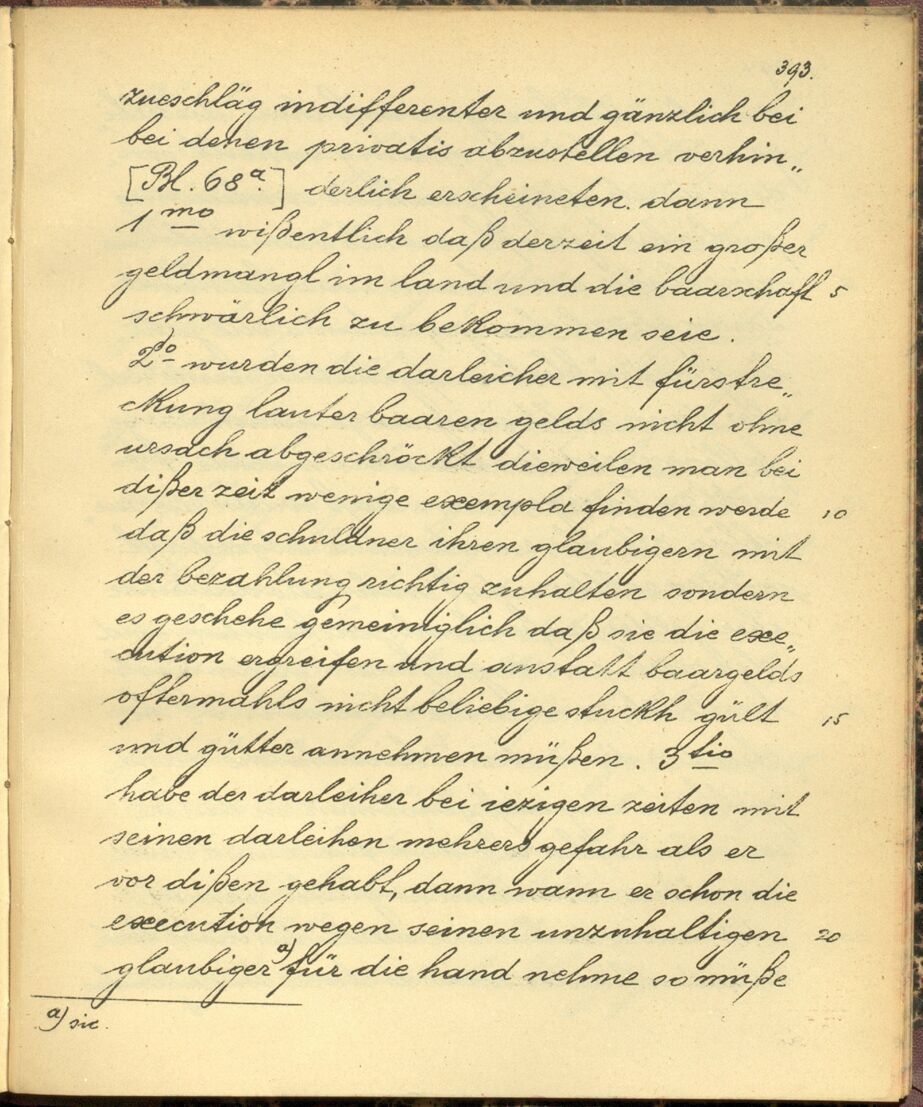 393.
zueschläg indifferenter und gänzlich bei
bei denen privatis abzustellen verhin„
[Bl. 68a.] derlich erscheineten. dann
1mo wißentlich daß derzeit ein großer
geldmangl im land und die baarschaft 5
schwärlich zu bekommen seie.
2do wurden die darleicher mit fürstre„
ckung lauter baaren gelds nicht ohne
ursach abgeschröckt dieweilen man bei
dißer zeit wenige exempla finden werde 10
daß die schuldner ihren glaubigern mit
der bezahlung richtig zuhalten sondern
es geschehe gemeiniglich daß sie die exe„
cution ergreifen und anstatt baargelds
oftermahls nicht beliebige stuckh gült 15
und gütter annehmen müßen. 3tio
habe der darleiher bei iezigen zeiten mit
seinen darleihen mehrers gefahr als er
vor dißen gehabt, dann wann er schon die
execution wegen seinen unzuhaltigen 20
glaubiger a) für die hand nehme so müße
a) sic.